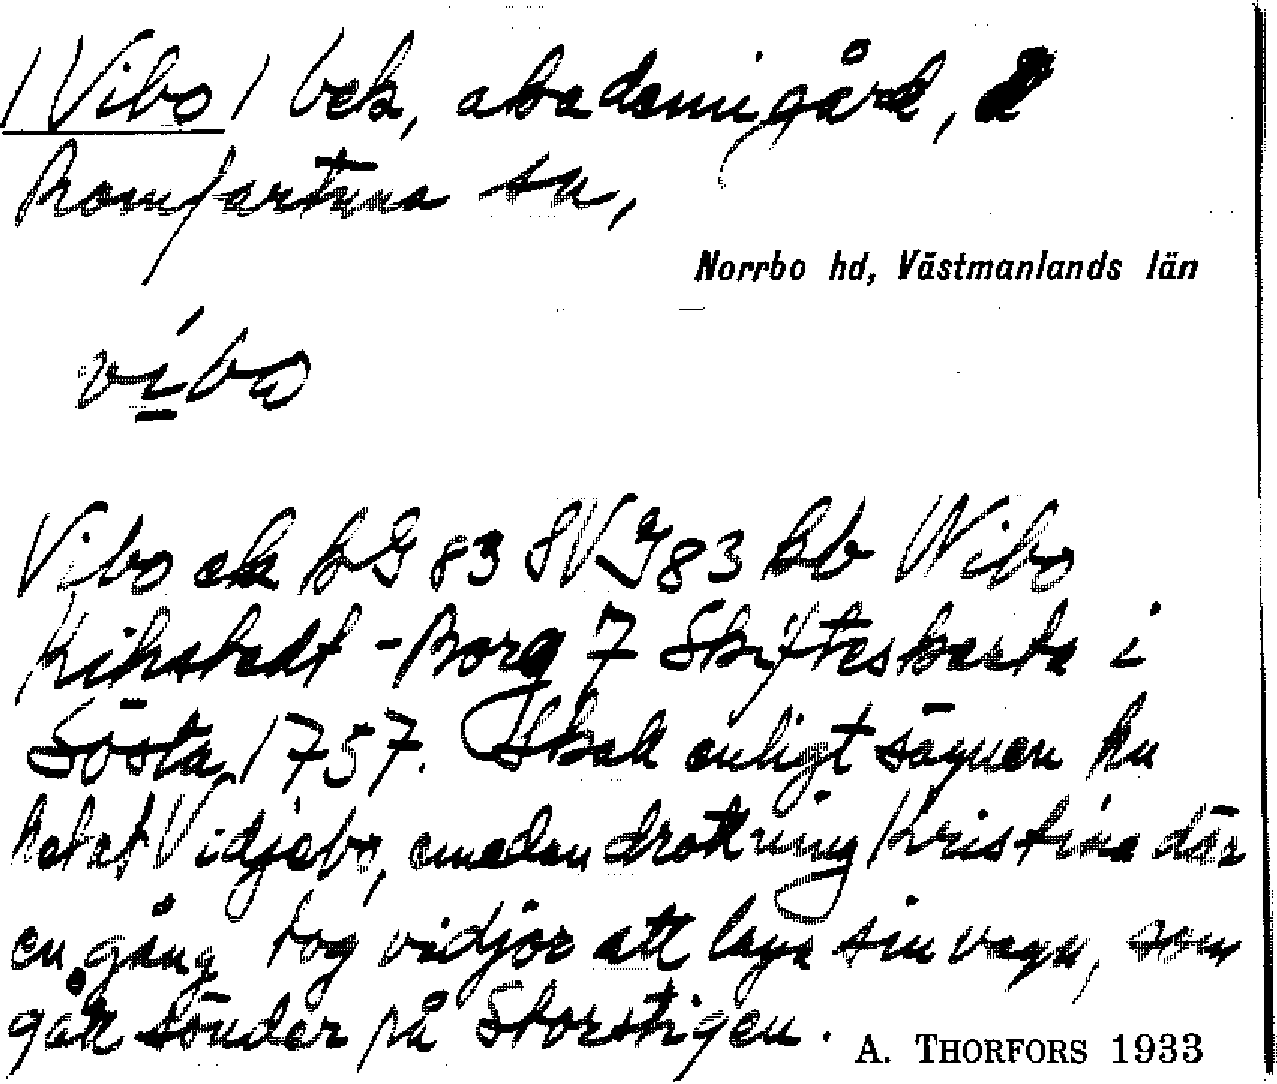 /Vibo/ bek, akademigård,
Romfartuna sn,
Norrbo hd, Västmanlands län
víbo
Vibo ek BG 83 SVG 83 Bb Wibo
Kihlstedt - Borg 7 Skifteskarta i
Sösta 1757. Skall enligt sägnen ha
hetat Vidjebo, emedan drottning Kristina där
en gång tog vidjor att laga sin vagn, som
gått sönder på Storstigen.
A. THORFORS 1933